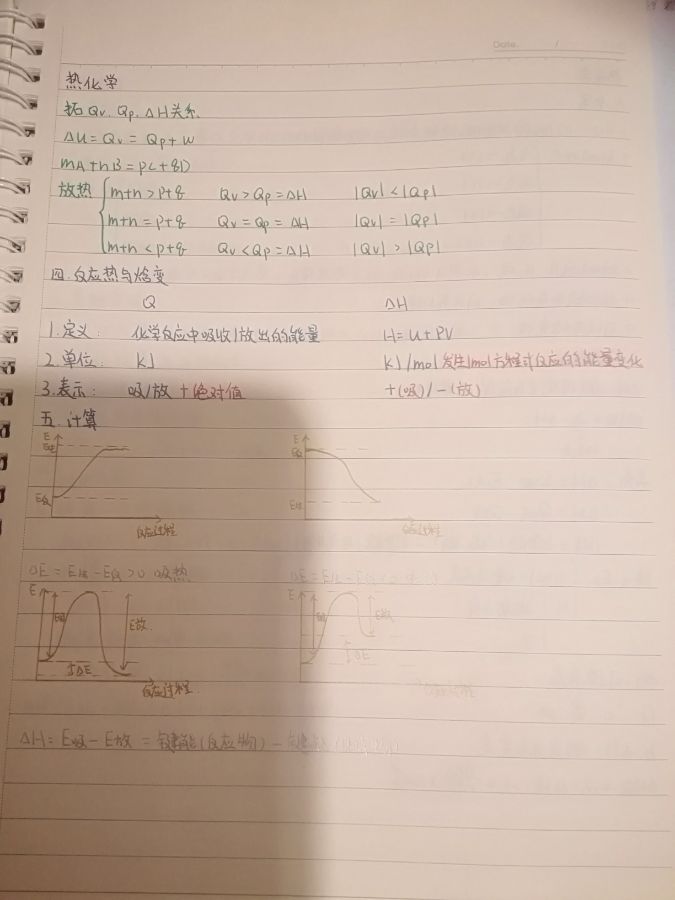 Date. /
热化学
拓 Qv. Qp. ΔH关系.
ΔU = Qv = Qp + W
mA + nB = pC + qD
放热 { m+n > p+q Qv > Qp = ΔH |Qv| < |Qp|
m+n = p+q Qv = Qp = ΔH |Qv| = |Qp|
m+n < p+q Qv < Qp = ΔH |Qv| > |Qp|
四. 反应热与焓变
Q ΔH
1. 定义: 化学反应中吸收/放出的的能量 H = U + PV
2. 单位: kJ kJ/mol 发生1mol方程式反应的能量变化
3. 表示: 吸/放 + 绝对值 +(吸)/-(放)
五. 计算
E E
E生 E反
E反 E生
反应过程 反应过程
ΔE = E生 - E反 > 0 吸热 ΔE = E生 - E反
E E
E吸 E放 E吸 E放
ΔE ΔE
反应过程 反应过程
ΔH = E吸 - E放 = 键能(反应物) -